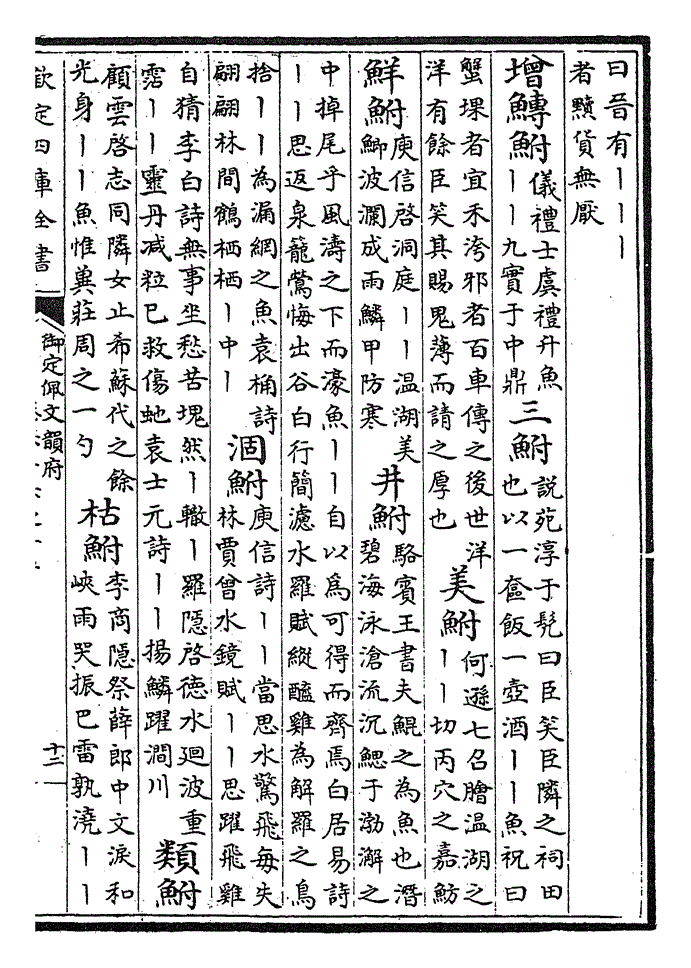 曰晉有丨丨丨
者黷貨無厭
增鱄鮒
儀禮士虞禮升魚
丨丨九實于中鼎
三鮒
說苑淳于髡曰臣笑臣隣之祠田
也以一奩飯一壺酒丨丨魚祝曰
蟹堁者宜禾洿邪者百車傳之後世洋
洋有餘臣笑其賜鬼薄而請之厚也
美鮒
何遜七召膾温湖之
丨丨切丙穴之嘉魴
鮮鮒
庾信啓洞庭丨丨温湖美
鯽波瀾成雨鱗甲防寒
井鮒
駱賓王書夫鯤之為魚也潛
碧海泳滄流沉鰓于渤澥之
中掉尾乎風濤之下而濠魚丨丨自以為可得而齊焉白居易詩
丨丨思返泉籠鶯悔出谷白行簡濾水羅賦縱醯雞為解羅之鳥
捨丨丨為漏網之魚袁桷詩
翩翩林間鶴栖栖丨中丨
涸鮒
庾信詩丨丨當思水驚飛每失
林賈曾水鏡賦丨丨思躍飛雞
自猜李白詩無事坐愁苦塊然丨轍丨羅隱啓德水廻波重
霑丨丨靈丹减粒已救傷虵袁士元詩丨丨揚鱗躍澗川
類鮒
顧雲啓志同隣女止希蘇代之餘
光身丨丨魚惟冀莊周之一勺
枯鮒
李商隱祭薛郎中文淚和
峽雨哭振巴雷孰澆丨丨
欽定四庫全書
御定佩文韻府
十二